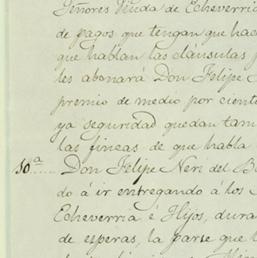 Señores Viuda de Echeverría
de pagos que tengan que hac
que hablan las cláusulas p
les abonará Don Felipe
premio de medio por ciento
ya seguridad quedan tam
las fincas de que habla
10ª..... Don Felipe Neri del B
do á ir entregando á los
Echeverría é Hijos, dura
de esperas, la parte que l